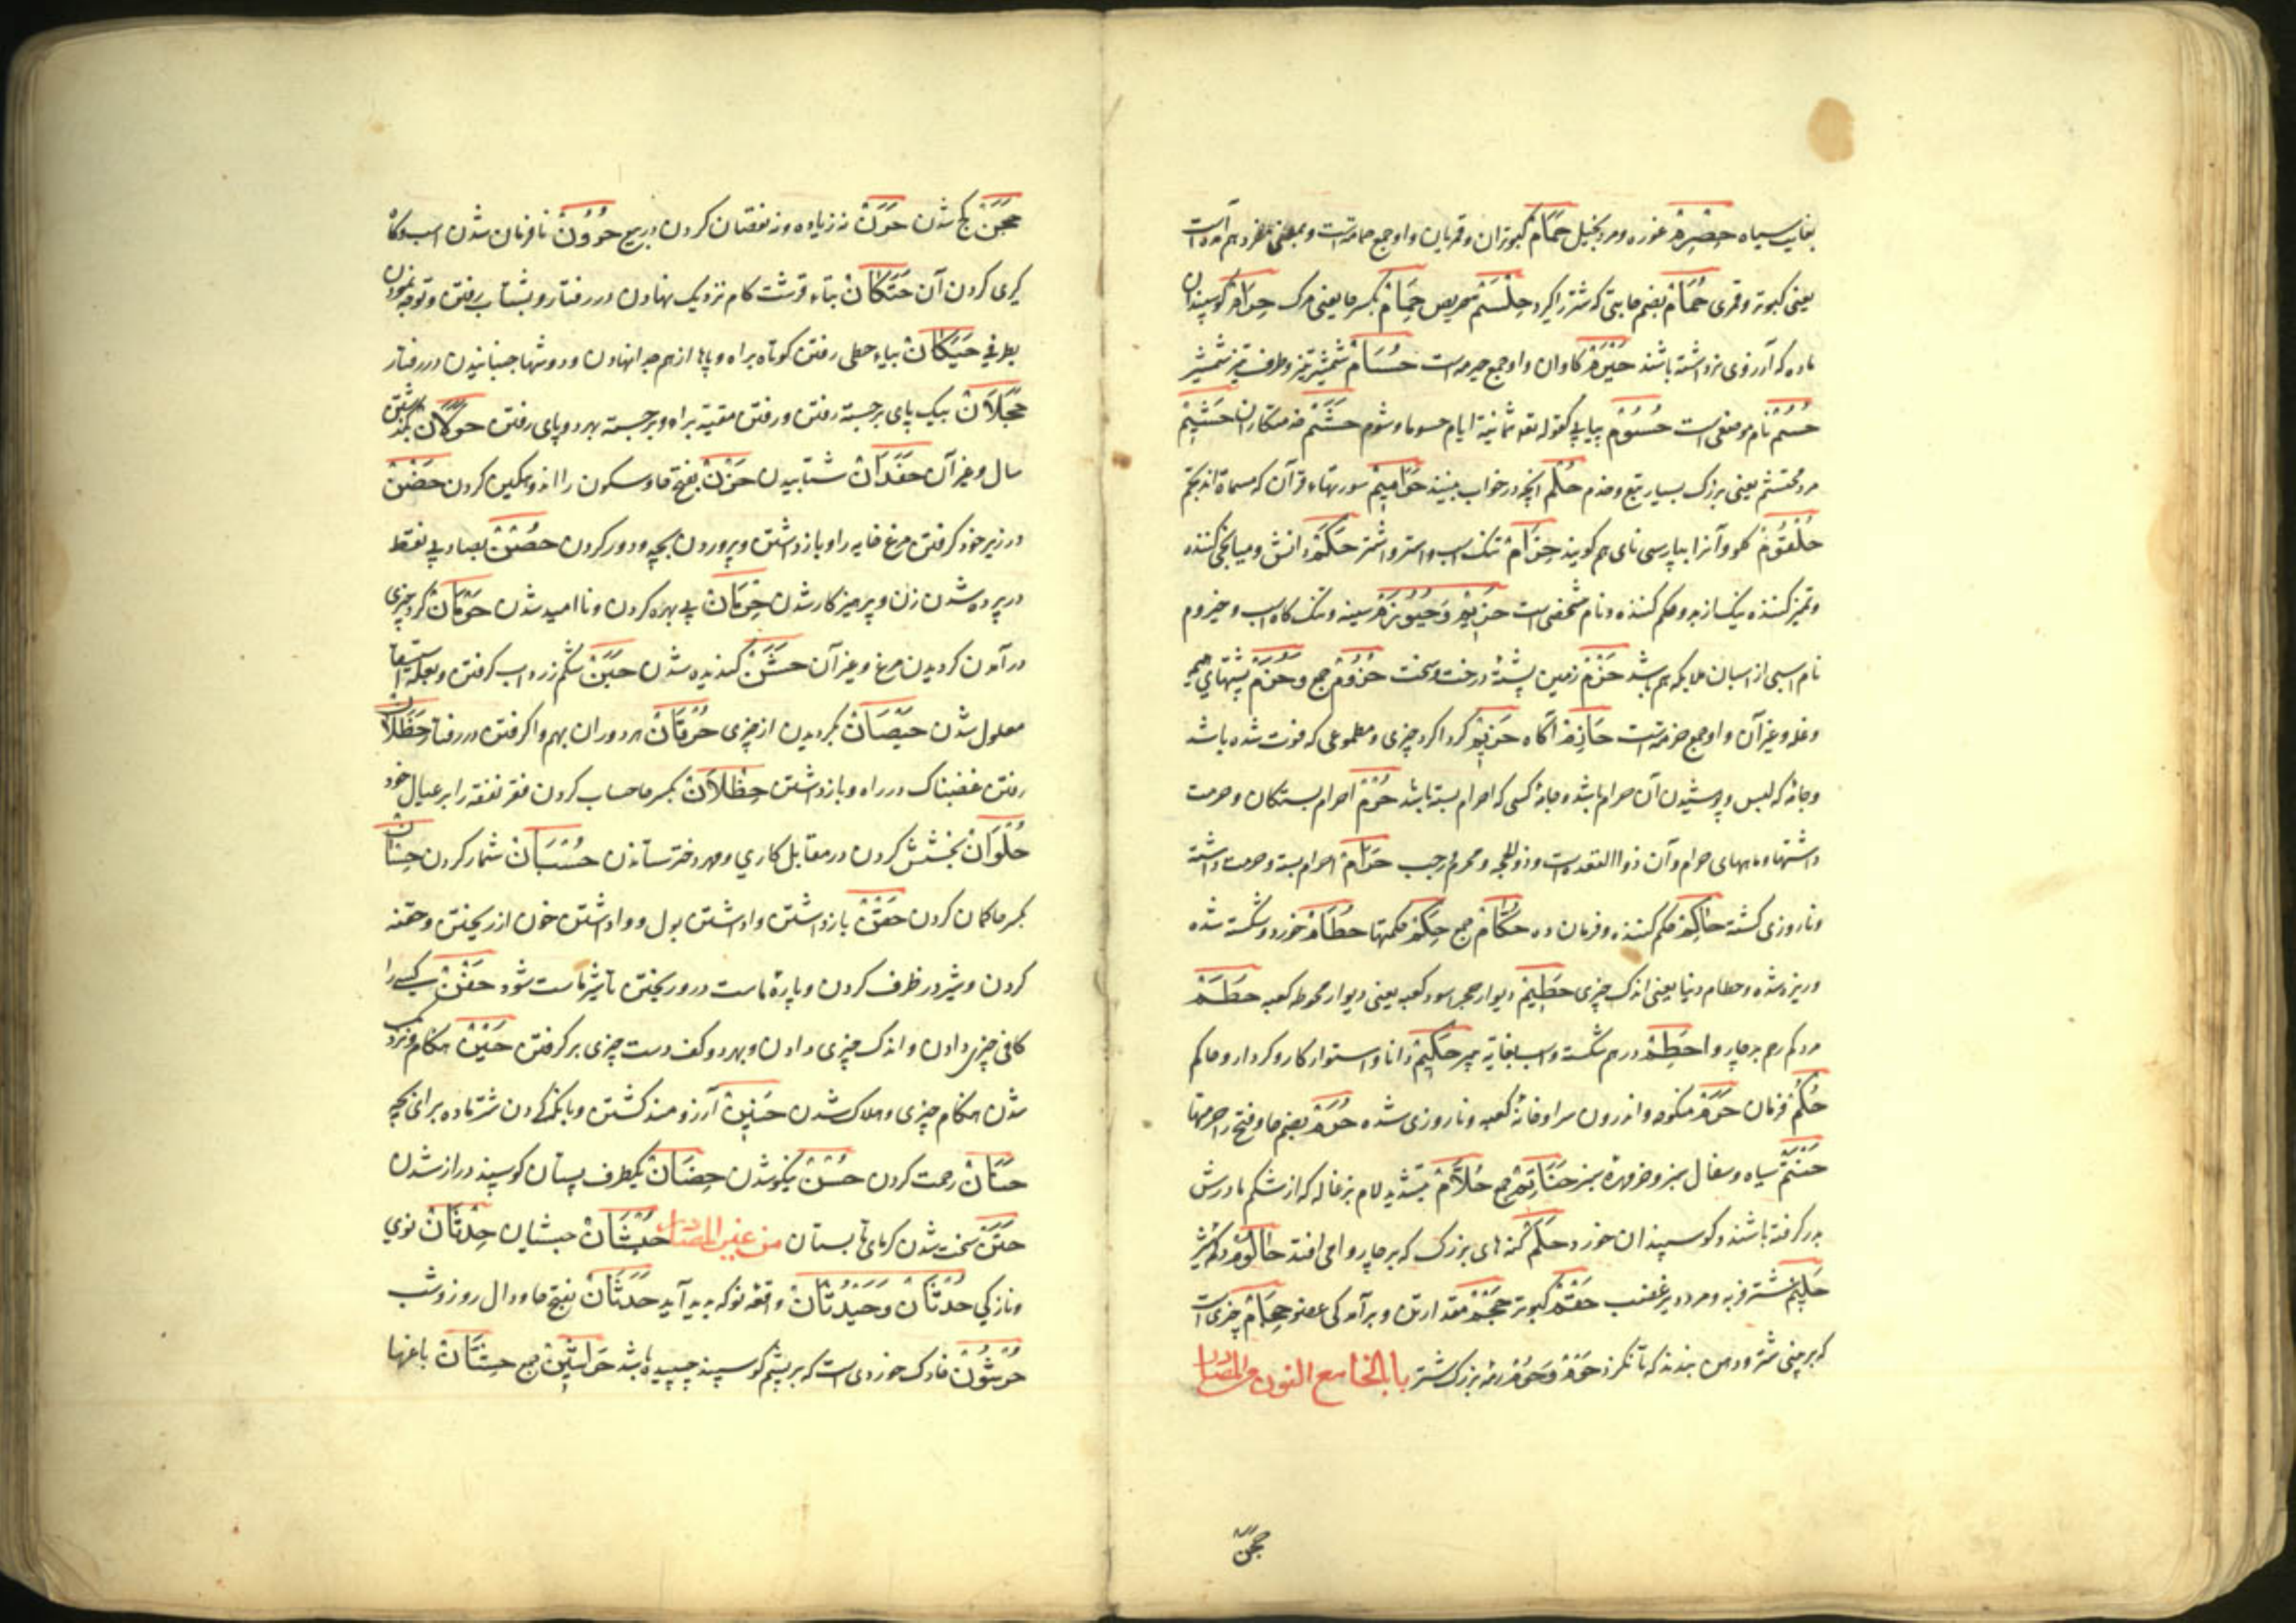 بغایت سیاه حِصْرِمْ غوره و مرد بخیل حَمَامْ کبوتران و قمریان و او جمع حمامة است و بمعنی مفرد هم آمده است
یعنی کبوتر و قمری حُمَامْ بضم حا تبی که شتر را گیرد حِلَّسْمْ حریص حِمَامْ بکسر حا یعنی مرک حِرَامْ کوسپندان
ماده که آرزوی نر داشته باشند کاوان و او جمع است حُسَامْ شمشیر تیز و طرف تیز شمشیر
حُسُمْ نام موضعی است حُسُوْمْ پیاپی کقوله تع ثمانیة ایام حسوما و شوم حَشَمْ خدمتکاران حَشِیْمْ
مرد محتشم یعنی بزرک بسیار تبع و خدم حُلْمْ آنچه در خواب بینند حَوَامِیْمْ سورتهاء قرآن که مسماة اند بحم
حُلْقُوْمْ کلو و آنرا بپارسی نای هم کویند حِزَامْ تنک اسب و استر و اشتر حَکَمْ دانش و میانجی کننده
و تمیز کننده نیک از بد و حکم کننده و نام شخصی است حَزِیْمْ وَ حَیْزُوْمْ سینه و تنک کاه اسب و حیزوم
نام اسبی از اسبان ملایکه هم باشد حَزْمْ زمین پشته درخت و سخت حُزُوْمْ جمع و حُزَمْ پشتهای هیمه
و غله و غیر آن و او جمع حزمة است حَازِمْ آکاه حَرِیْمْ کرداکرد چیزی و مطموعی که فوت شده باشد
و جامه که لبس و پوشیدن آن حرام باشد و جامه کسی که احرام بسته باشد حُرُمْ احرام بستکان و حرمت
داشتها و ماههای حرام و آن ذوالقعده است و ذوالحجه و محرم و رجب حَرَامْ احرام بسته و حرمت داشته
و ناروزی کشته حَاکِمْ حکم کننده و فرمان ده حُکَّامْ جمع حِکَمْ حکمتها حُطَامْ خورد و شکسته شده
و ریزه شده و حطام دنیا یعنی اندک چیزی حَطِیْمْ دیوار حجر اسود کعبه یعنی دیوار محوطه کعبه حُطَمْ
مرد کم رحم بر چاروا حَطِمْ در هم شکسته و اسب بغایة پیر حَکِیْمْ دانا و استوار کار و کردار و حاکم
حُکْمْ فرمان حَرَمْ منکوحه و اندرون سرا و خانه کعبه و ناروزی شده حُرَمْ بضم حا و فتح را حرمتها
حَنْتَمْ سیاه و سفال سبز و خرمهره سبز حَنَاتِمْ جمع حُلَّامْ بتشدید لام بزغاله که از شکم مادرش
بدر کرفته باشند و کوسپندان خورد حَلَمْ کنه های بزرک که بر چاروا می افتد
حَلِیْمْ شتر فربه و مرد دیر غضب کبوتر حَجْمْ مقدار تن و برآمدکی عضو حِجَامْ چیزی است
که بر بینی شتر و دهن بندند که تا نکزد حَوْمْ وَ حُوْمْ رمه بزرک شتر باب الحا مع النون من المصادر
حَجَنْ
حَجَنْ کج شدن حَرْنْ نه زیاده و نه نقصان کردن در بیع حُرُوْنْ نافرمان شدن اسب و کاه
کیری کردن آن حَتَکَانْ بتاء قرشت کام نزدیک نهادن در رفتار و بشتاب رفتن و توجه نمودن
بطرفی حَیَکَانْ بیاء حطی رفتن کوتاه براه و پاها از هم جدا نهادن و دوشها جنبانیدن در رفتار
حَجَلَانْ بیک پای برجسته رفتن و رفتن مقید براه و برجسته بهر دو پای رفتن حَوَلَانْ بکذشتن
سال و غیر آن حَفَدَانْ شتابیدن حَزْنْ بفتح حا و سکون زا اندوهکین کردن حَضْنْ
در زیر خود کرفتن مرغ خایه را و باز داشتن و پروردن بچه و دور کردن حُصْنْ بصاد بی نقطه
در پرده شدن زن و پرهیزکار شدن حِرْمَانْ بی بهره کردن و ناامید شدن حَوَمَانْ کرد چیزی
در آمدن کردیدن مرغ و غیر آن حَشَنْ کندیده شدن حَبَنْ شکم زرداب کرفتن و بعلة استسقا
معلول شدن حَیَصَانْ بکردیدن از چیزی حُرْقَانْ هر دو ران بهم واکرفتن در رفتار حَظَلَانْ
رفتن غضبناک در راه و باز داشتن حِظْلَانْ بکسر حا حساب کردن فقر نفقه را بر عیال خود
حُلْوَانْ بخشش کردن در مقابل کاری و مهر دختر ستاندن حُسْبَانْ شمار کردن حِسْبَانْ
بکسر حا کمان کردن حَقْنْ باز داشتن و وا داشتن بول و وا داشتن خون از ریختن و حقنه
کردن و شیر در ظرف کردن و پاره ماست درو ریختن تا شیر ماست شود حَفْنْ کسی را
کافی چیزی دادن و اندک چیزی دادن و بهر دو کف دست چیزی بر کرفتن حَیْنْ هنکام و نزدیک
شدن هنکام چیزی و هلاک شدن حَنِیْنْ آرزومند کشتن و بانک کردن شتر ماده برای بچه
حَنَانْ رحمت کردن حُسْنْ نیکو شدن حِضَانْ یکطرف پستان کوسپند دراز شدن
حَتَنْ سخت شدن کرمای تابستان من غیر المصادر حُبْشَانْ حبشیان حِدْثَانْ نوی
و تازکی حُدْثَانْ وَ حُدَیْثَانْ واقعه نو که پدید آید حَدَثَانْ بفتح حا و دال روز و شب
حُرْثُوْنْ خارک خوردی است که بر پشم کوسپند چسپیده باشد حَرَاثِیْنْ جمع باغها